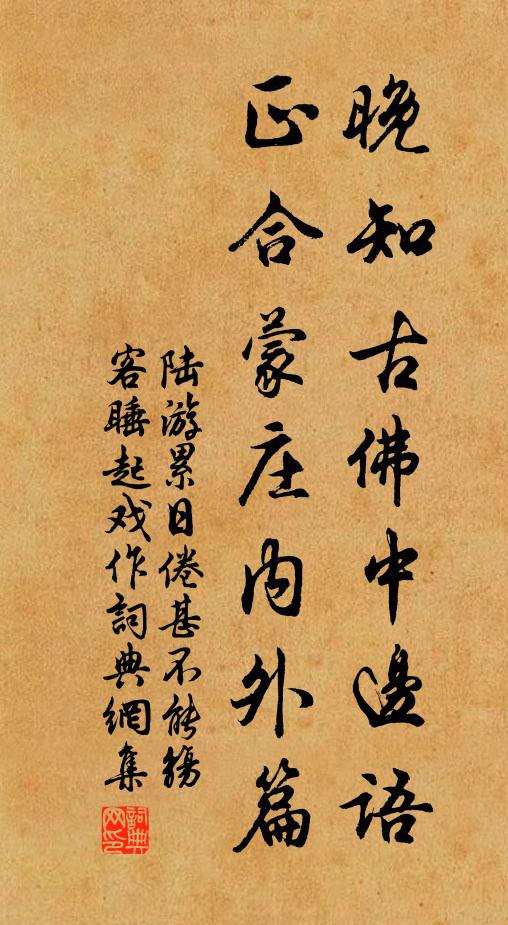 晚知古佛中邊语
正合蒙庄内外篇
陆游累日倦甚不能觞
客睡起戏作詞典網集
詞典网印